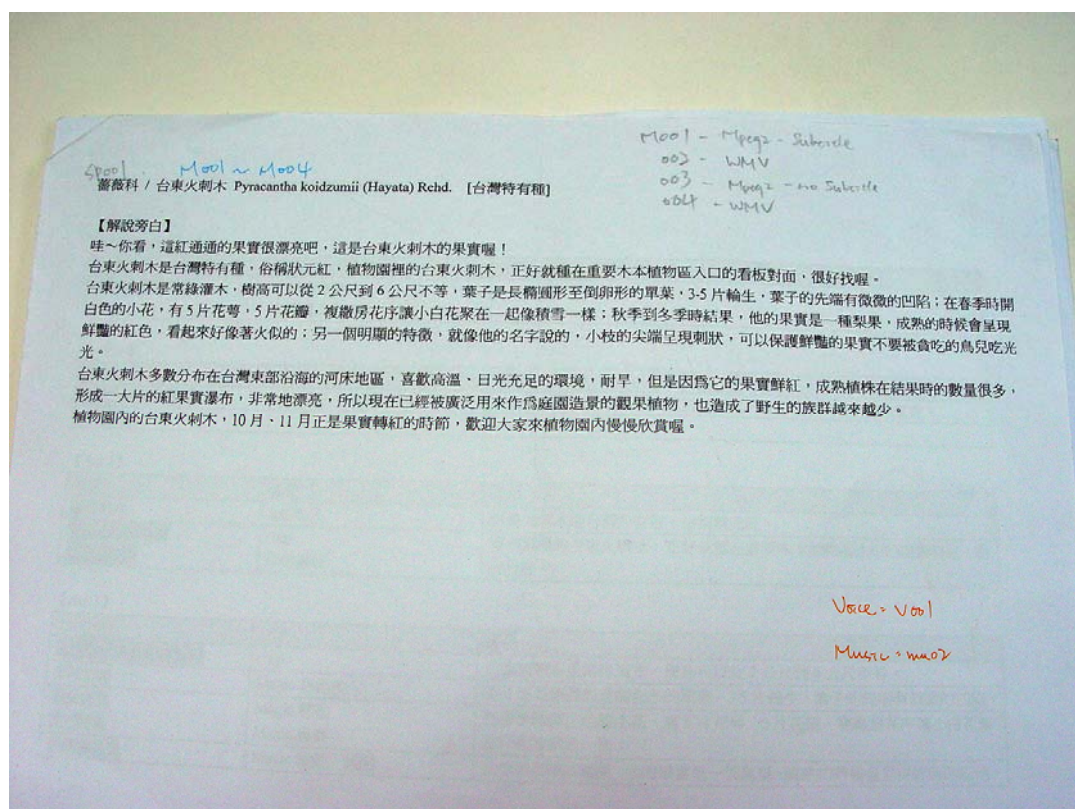 M001 - Mpeg2 - Subtitle
002 - WMV
003 - Mpeg2 - no Subtitle
004 - WMV
SP001. M001 ~ M004
薔薇科 / 台東火刺木 Pyracantha koidzumii (Hayata) Rehd. [台灣特有種]
【解說旁白】
哇~你看，這紅通通的果實很漂亮吧，這是台東火刺木的果實喔！
台東火刺木是台灣特有種，俗稱狀元紅，植物園裡的台東火刺木，正好就種在重要木本植物區入口的看板對面，很好找喔。
台東火刺木是常綠灌木，樹高可以從 2 公尺到 6 公尺不等，葉子是長橢圓形至倒卵形的單葉，3-5 片輪生，葉子的先端有微微的凹陷；在春季時開
白色的小花，有 5 片花萼，5 片花瓣，複繖房花序讓小白花聚在一起像積雪一樣；秋季到冬季時結果，他的果實是一種梨果，成熟的時候會呈現
鮮豔的紅色，看起來好像著火似的；另一個明顯的特徵，就像他的名字說的，小枝的尖端呈現刺狀，可以保護鮮豔的果實不要被貪吃的鳥兒吃光
光。
台東火刺木多數分布在台灣東部沿海的河床地區，喜歡高溫、日光充足的環境，耐旱，但是因為它的果實鮮紅，成熟植株在結果時的數量很多，
形成一大片的紅果實瀑布，非常地漂亮，所以現在已經被廣泛用來作為庭園造景的觀果植物，也造成了野生的族群越來越少。
植物園內的台東火刺木，10 月、11 月正是果實轉紅的時節，歡迎大家來植物園內慢慢欣賞喔。
Voice = V001
Music = mu02